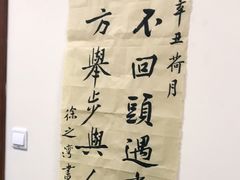 辛丑荷月
不回頭遇
方舉步與
徐之灣書